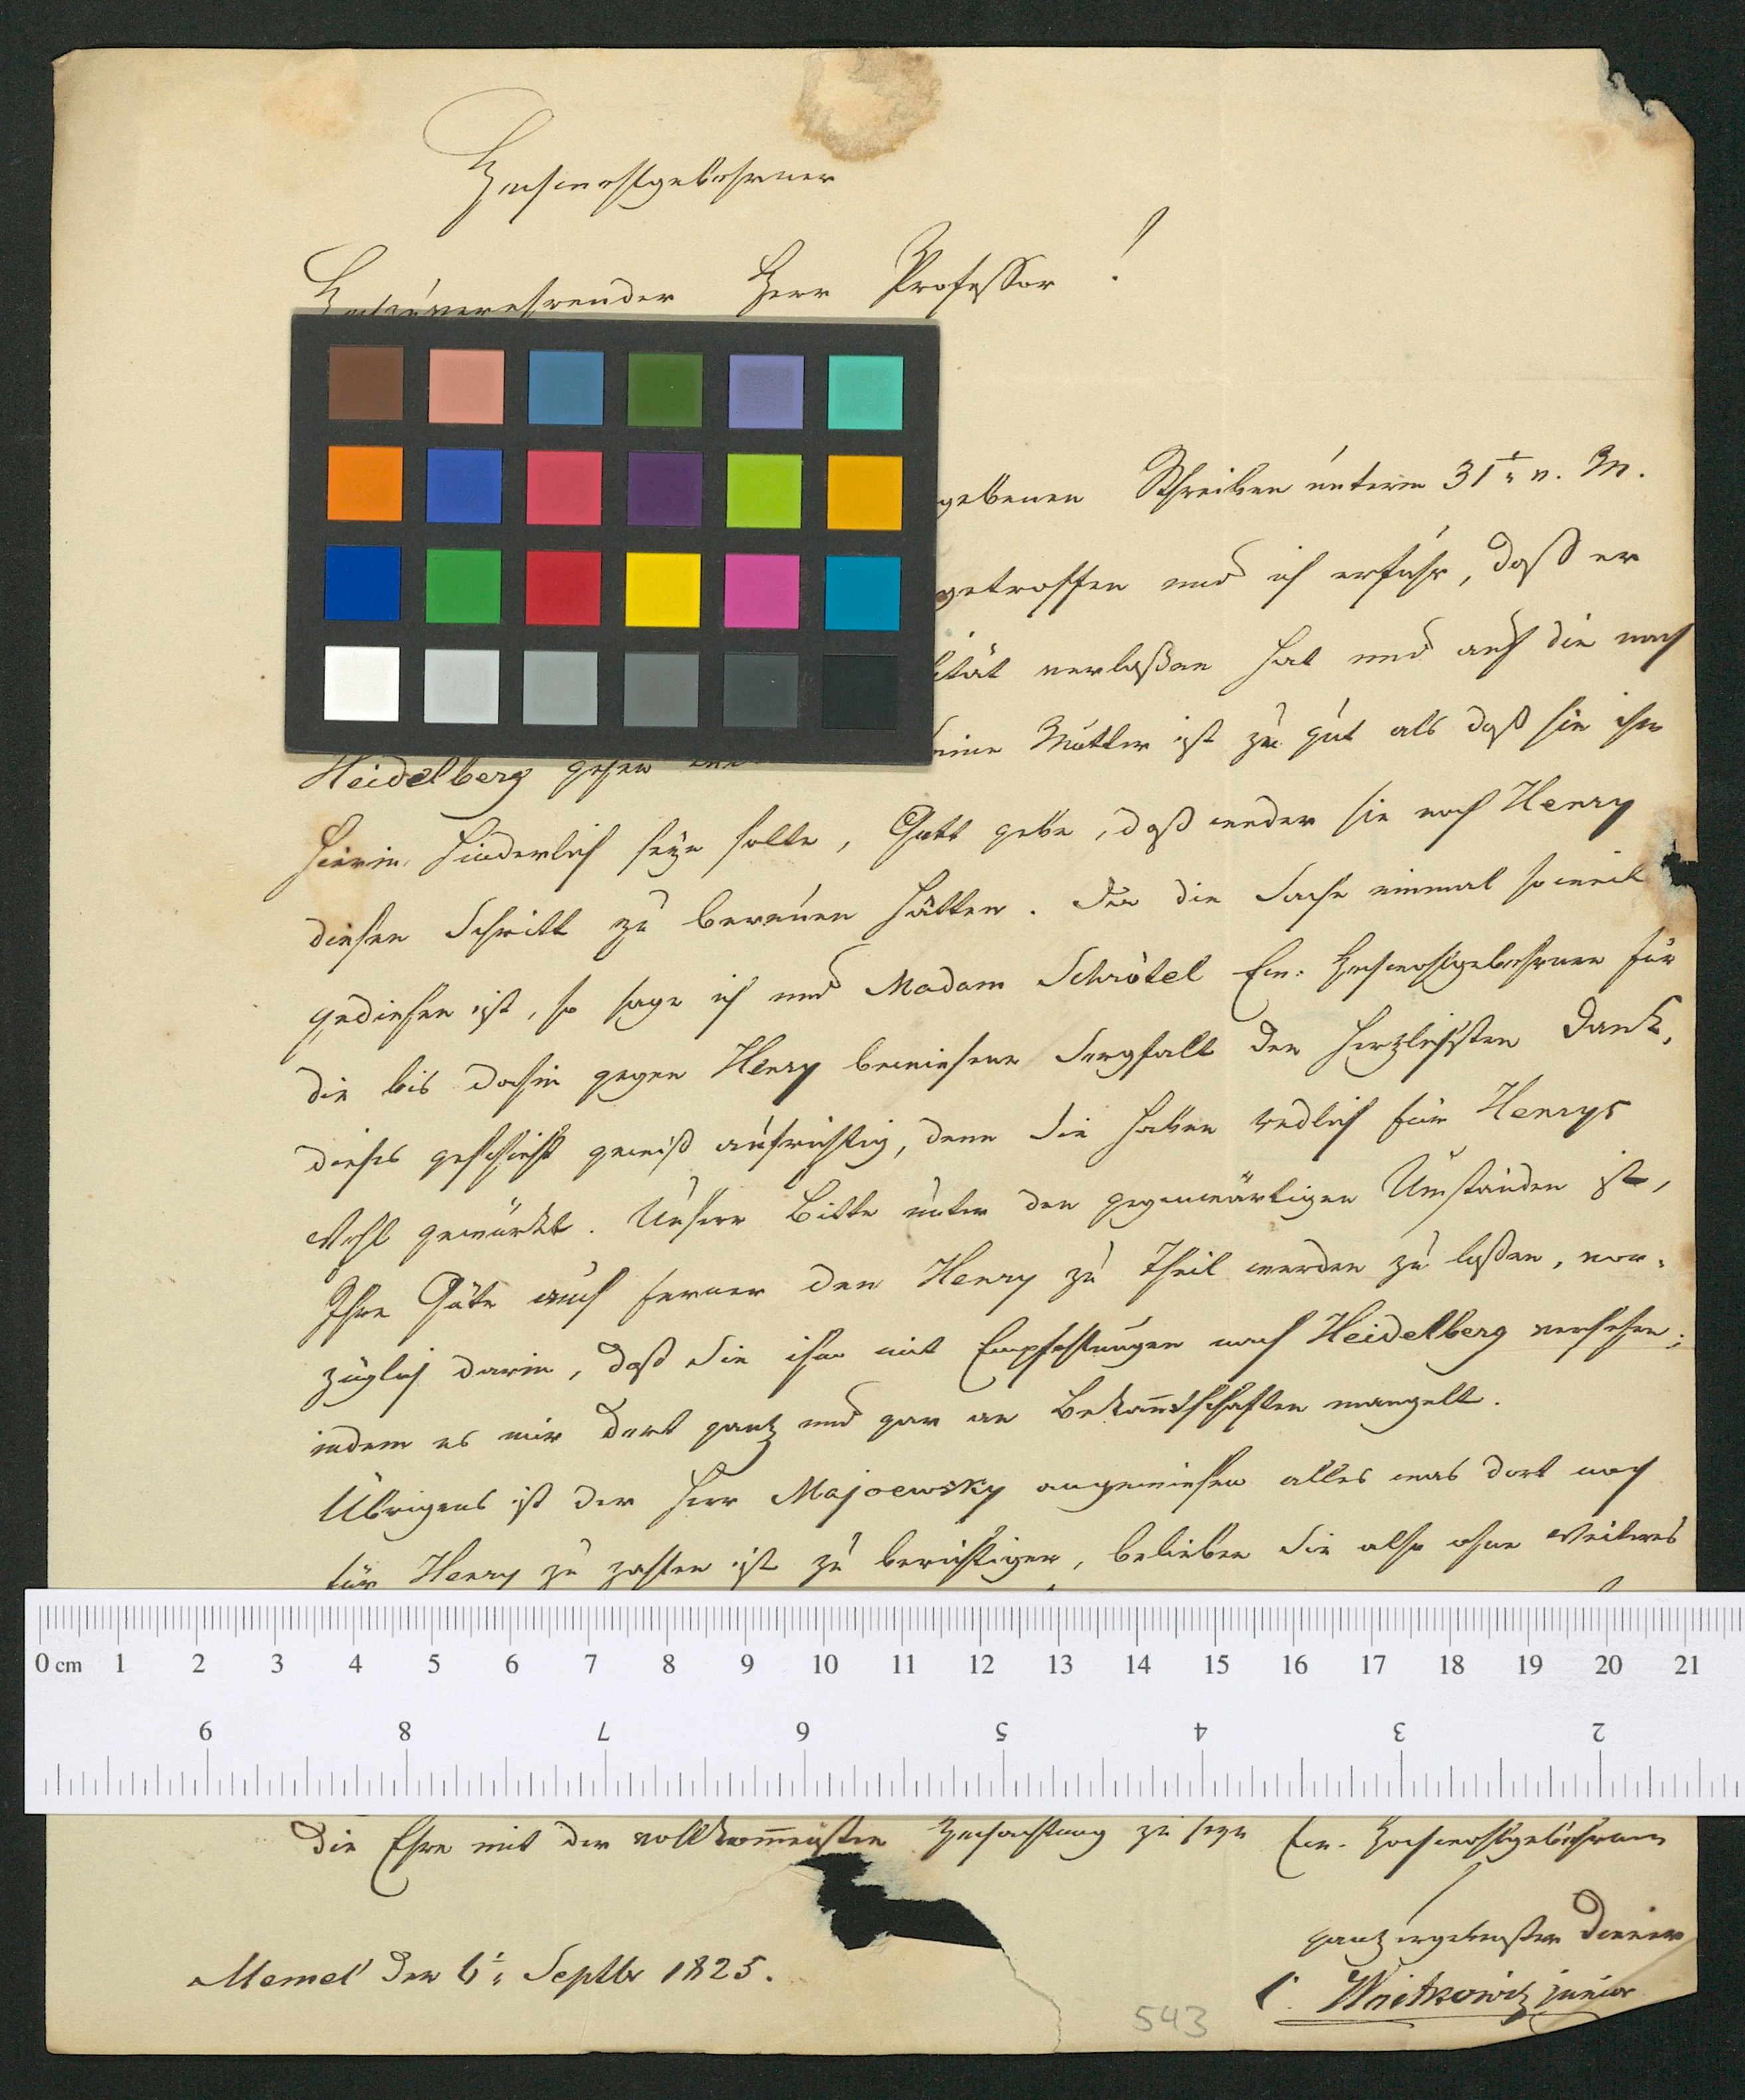 Hochwohlgebohrner
Hochzuverehrender Herr Professor!
gebenen Schreiben unterm 31t v. M.
getroffen und ich erfuhr, daß er
ität verlaßen hat und auf die nach
Heidelberg gehen seine Mutter ist zu gut als daß sie ihm
hierin hinderlich seyn sollte, Gott gebe, daß weder sie noch Henry
diesen Schritt zu bereuen hätten. Da die Sache einmal so weit
gediehen ist, so sage ich und Madam Schrötel Ew: Hochwohlgebohrnen für
die bis dahin gegen Henry bewiesene Sorgfalt den herzlichsten Dank,
dieses geschieht gewiß aufrichtig, denn Sie haben redlich für Henrys
Wohl gewürkt. Unsere Bitte unter den gegenwärtigen Umständen ist,
Ihre Güte auch ferner dem Henry zu Theil werden zu laßen, vor-
züglich darin, daß Sie ihn mit Empfehlungen nach Heidelberg versehen;
indem es mir dort ganz und gar an Bekanntschaften mangelt.
Übrigens ist der Herr Majoewsky angewiesen alles was dort noch
für Henry zu zahlen ist zu berichtigen, belieben Sie also ohne Weiteres
die Ehre mit der vollkommensten Hochachtung zu seyn Ew. Hochwohlgebohrnen
ganz ergebenster Diener
Memel den 6t Septbr 1825.
C. Woitkowitz junior
543
0 cm 1 2 3 4 5 6 7 8 9 10 11 12 13 14 15 16 17 18 19 20 21
9 8 7 6 5 4 3 2